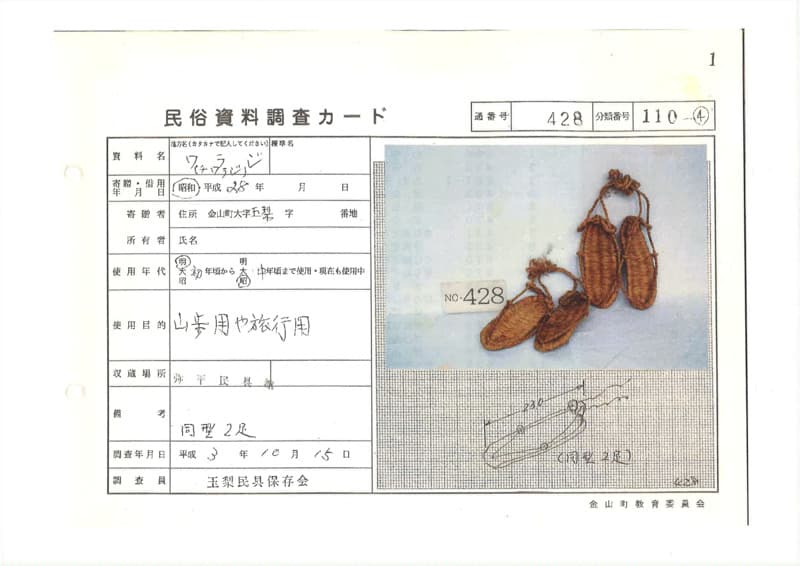 1
民俗資料調査カード
通番号 428 分類番号 110-④
資料名 地方名(カタカナで記入してください) 標準名
寄贈・借用年月日 昭和・平成 28年 月 日
寄贈者 住所 金山町大字玉梨 字 番地
所有者 氏名
使用年代 明 大 昭 初年頃から 明 大 昭 中年頃まで使用・現在も使用中
使用目的 山歩用や旅行用
収蔵場所 弥平民具館
備考 同型2足
調査年月日 平成 3年 10月 15日
調査員 玉梨民具保存会
NO.428
230
(同型2足)
金山町教育委員会